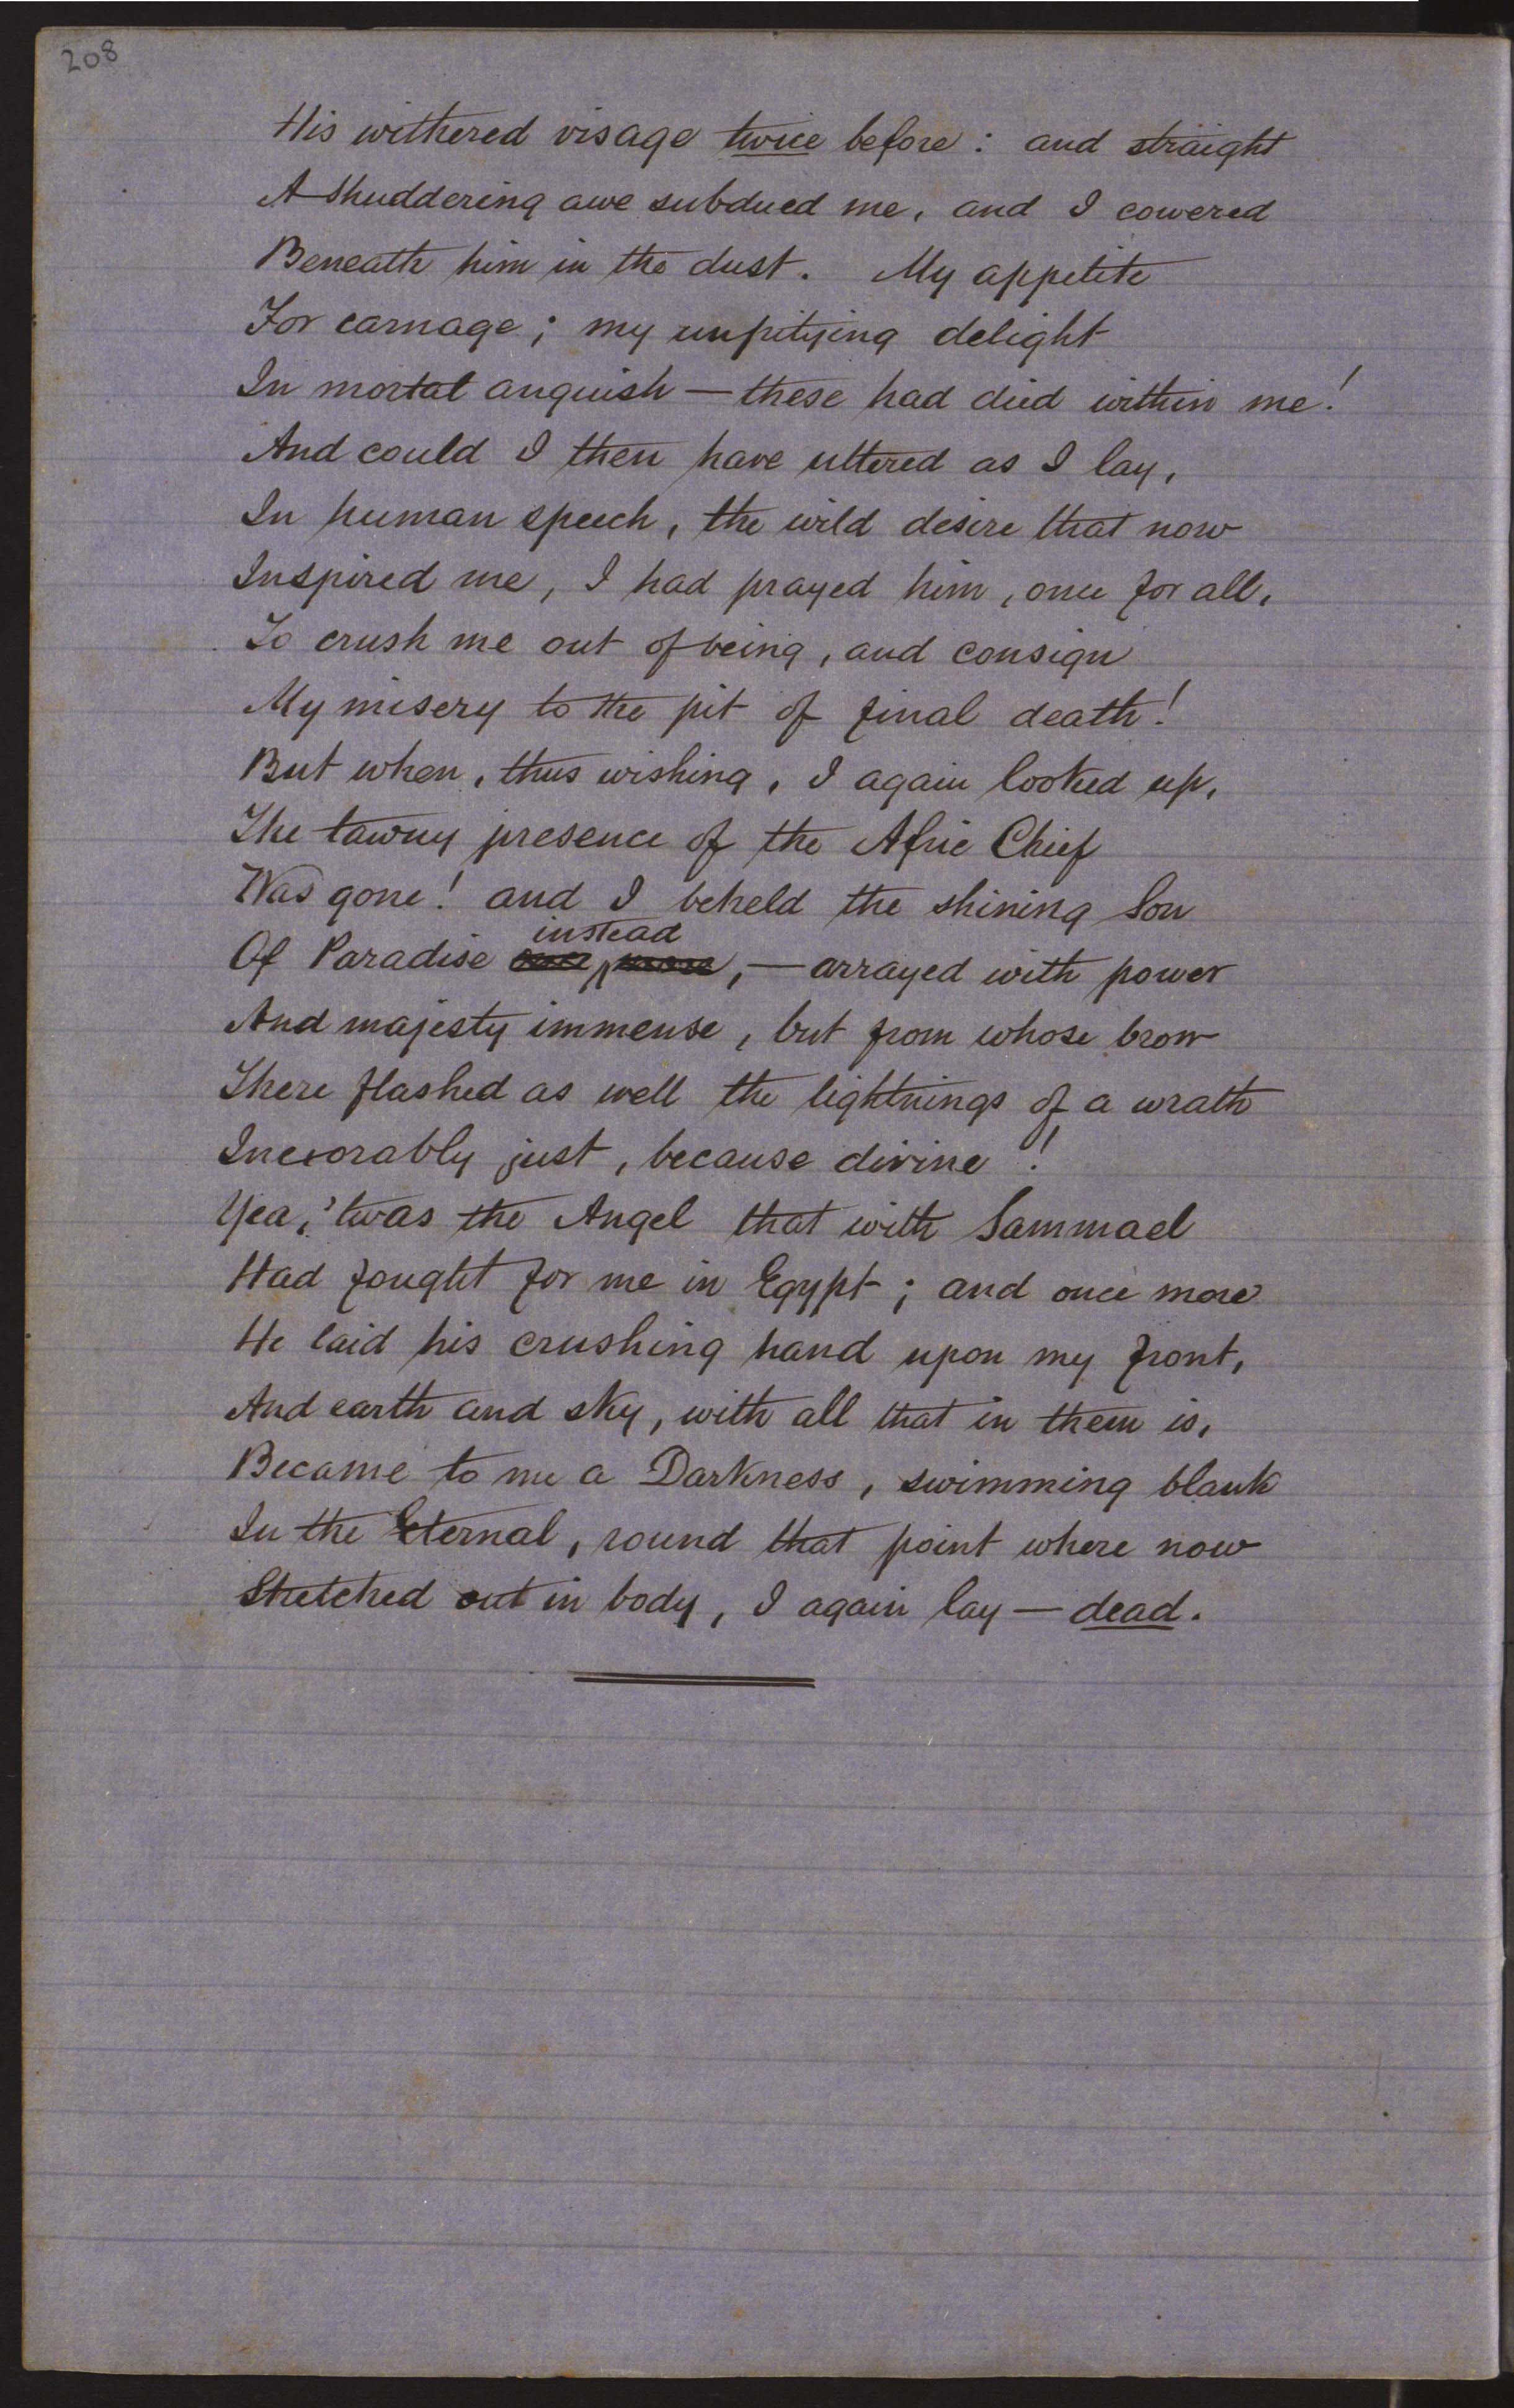 208
His withered visage twice before: and straight
A shuddering awe subdued me, and I cowered
Beneath him in the dust. My appetite
For carnage; my unpitying delight
In mortal anguish — these had died within me!
And could I then have uttered as I lay,
In human speech, the wild desire that now
Inspired me, I had prayed him, once for all,
To crush me out of being, and consign
My misery to the pit of final death!
But when, thus wishing, I again looked up,
The tawny presence of the Afric Chief
Was gone! and I beheld the shining Son
instead
Of Paradise once more, — arrayed with power
And majesty immense, but from whose brow
There flashed as well the lightnings of a wrath
Inexorably just, because divine!
Yea, 'twas the Angel that with Sammael
Had fought for me in Egypt; and once more
He laid his crushing hand upon my front,
And earth and sky, with all that in them is,
Became to me a Darkness, swimming blank
In the Eternal, round that point where now
Stretched out in body, I again lay — dead.